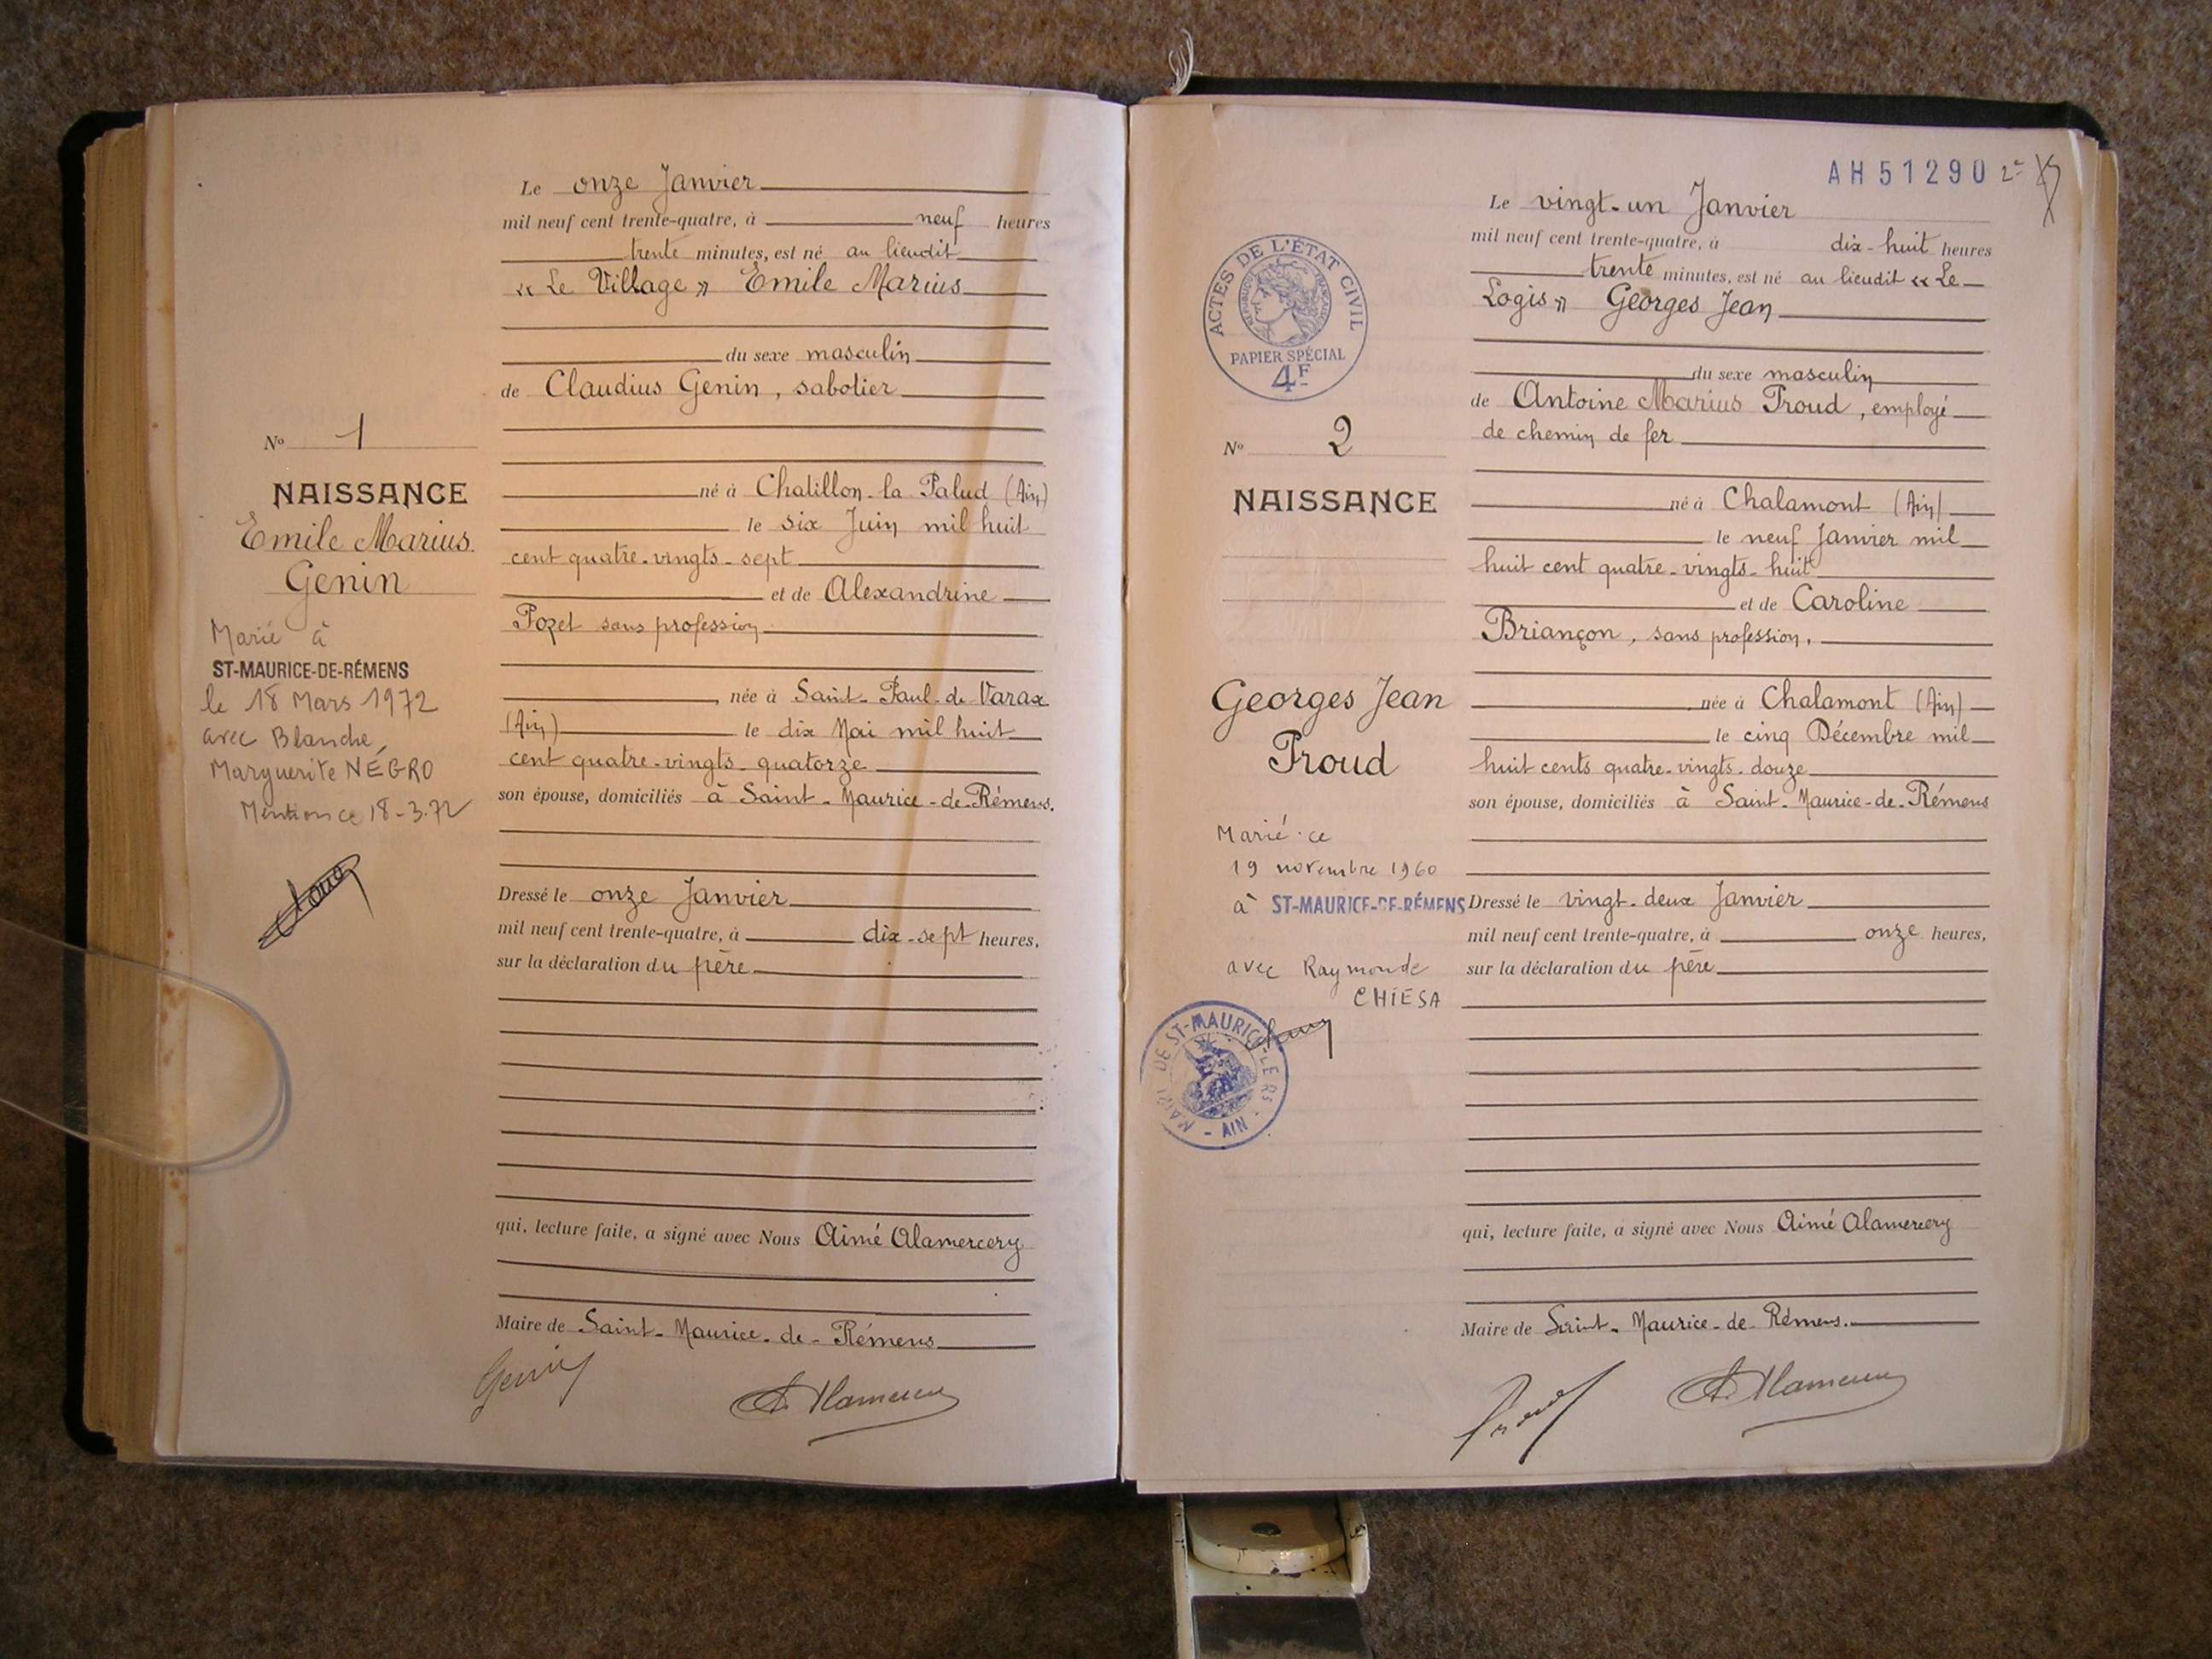 Le onze Janvier
mil neuf cent trente-quatre, à neuf heures
trente minutes, est né au lieudit
« Le Village » Emile Marius
du sexe masculin
de Claudius Genin, sabotier
né à Chatillon-la Palud (Ain)
le six Juin mil huit
cent quatre-vingts-sept
et de Alexandrine
Pozet sans profession
née à Saint-Paul-de Varax
(Ain) le dix Mai mil huit
cent quatre-vingts-quatorze
son épouse, domiciliés à Saint-Maurice-de-Rémens.
Dressé le onze Janvier
mil neuf cent trente-quatre, à dix-sept heures,
sur la déclaration du père
qui, lecture faite, a signé avec Nous Aimé Alamercery
Maire de Saint-Maurice-de-Rémens
Genin
A. Alamercery
No 1
NAISSANCE
Emile Marius
Genin
Marié à
ST-MAURICE-DE-RÉMENS
le 18 Mars 1972
avec Blanche
Marguerite NÉGRO
Mention ce 18-3.72
AH51290
Le vingt-un Janvier
mil neuf cent trente-quatre, à dix-huit heures
trente minutes, est né au lieudit « Le
Logis » Georges Jean
du sexe masculin
de Antoine Marius Proud, employé
de chemin de fer
né à Chalamont (Ain)
le neuf Janvier mil
huit cent quatre-vingts-huit
et de Caroline
Briançon, sans profession,
née à Chalamont (Ain)
le cinq Décembre mil
huit cents quatre-vingts-douze
son épouse, domiciliés à Saint-Maurice-de-Rémens
Dressé le vingt-deux Janvier
mil neuf cent trente-quatre, à onze heures,
sur la déclaration du père
qui, lecture faite, a signé avec Nous Aimé Alamercery
Maire de Saint-Maurice-de-Rémens.
Proud
A. Alamercery
ACTES DE L'ÉTAT CIVIL
RÉPUBLIQUE FRANÇAISE
PAPIER SPÉCIAL
4F
No 2
NAISSANCE
Georges Jean
Proud
Marié ce
19 novembre 1960
à ST-MAURICE-DE-RÉMENS
avec Raymonde
CHIESA
AIN